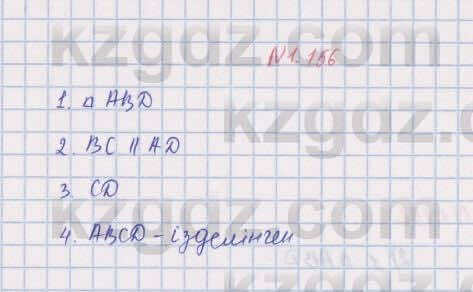 N1.156
1. △ ABD
2. BC || AD
3. CD
4. ABCD - ізделінген
kzgdz.com
kzgdz.com
kzgdz.com